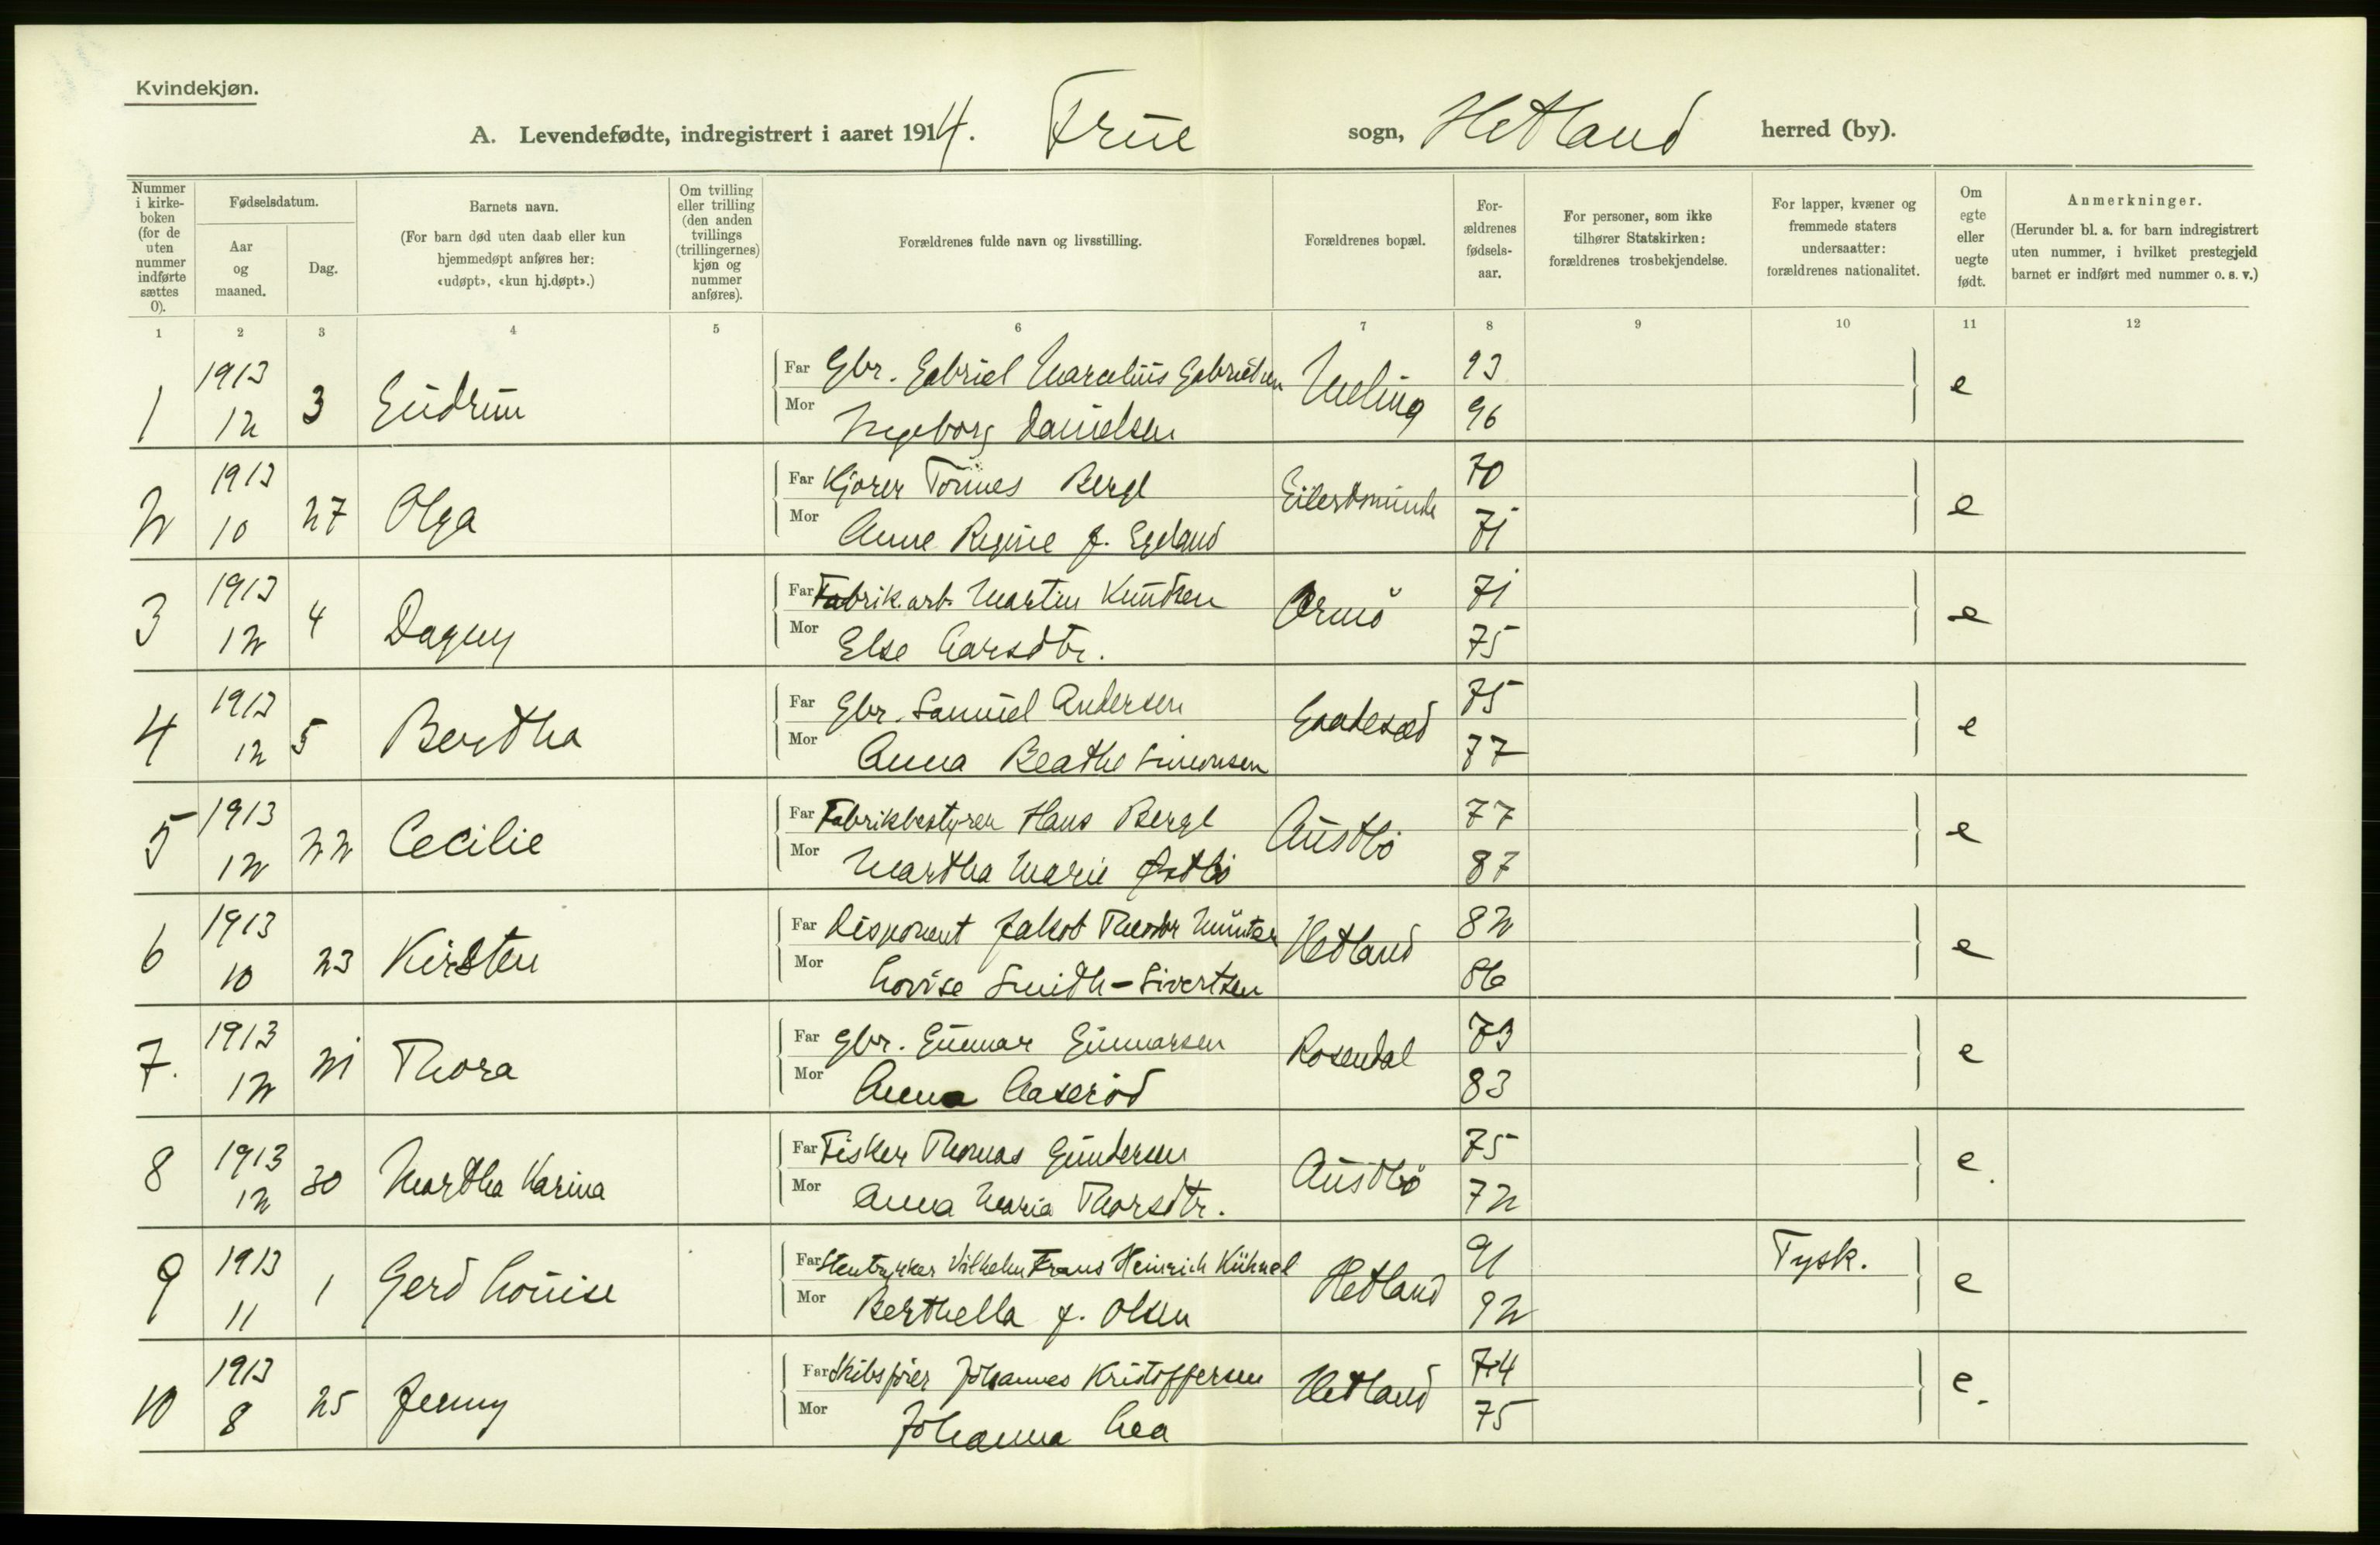 Kvindekjøn.
A. Levendefødte, indregistrert i aaret 1914. Frue sogn, Hetland herred (by).
Nummer i kirke- boken (for de uten nummer indførte sættes 0).
Fødselsdatum.
Aar og maaned.
Dag.
Barnets navn.
(For barn død uten daab eller kun hjemmedøpt anføres her: «udøpt», «kun hj.døpt».)
Om tvilling eller trilling (den anden tvillings (trillingernes) kjøn og nummer anføres).
Forældrenes fulde navn og livsstilling.
Forældrenes bopæl.
For- ældrenes fødsels- aar.
For personer, som ikke tilhører Statskirken: forældrenes trosbekjendelse.
For lapper, kvæner og fremmede staters undersaatter: forældrenes nationalitet.
Om egte eller uegte født.
Anmerkninger.
(Herunder bl. a. for barn indregistrert uten nummer, i hvilket prestegjeld barnet er indført med nummer o. s. v.)
1 2 3 4 5 6 7 8 9 10 11 12
1 1913 12 3 Gudrun Far Gbr. Gabriel Marcelius Gabrielsen Meling 93 e
Mor Ingeborg Danielsen 96
2 1913 10 27 Olga Far Kjører Tønnes Berge 70 e
Mor Anne Regine f. Egeland 71
3 1913 12 4 Dagny Far Fabrik.arb. Martin Knutsen Ormø 71 e
Mor Else Larsdtr. 75
4 1913 12 5 Bertha Far Gbr. Samuel Andersen 75 e
Mor Anna Beathe Simonsen 77
5 1913 12 22 Cecilie Far Fabrikbestyrer Hans Berge Austbø 77 e
Mor Martha Marie Østbø 87
6 1913 10 23 Kirsten Far Disponent Jakob Theodor Hetland 82 e
Mor Lovise Smith-Sivertsen 86
7. 1913 12 21 Thora Far Gbr. Gunnar Gunnarsen Rosendal 73 e
Mor Anna Aaserød 83
8 1913 12 30 Martha Karina Far Fisker Thomas Gundersen Austbø 75 e.
Mor Anna Maria Thorsdtr. 72
9 1913 11 1 Gerd Louise Far Stentrykker Vilhelm Frans Heinrich Kühnel Hetland 91 Tysk. e
Mor Berthella f. Olsen 92
10 1913 8 25 Jenny Far Skibsfører Johannes Kristoffersen Hetland 74 e.
Mor Johanna Lea 75